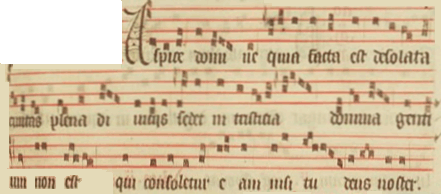 Aspice domine quia facta est desolata
civitas plena divitiis sedet in tristicia domina genti
um non est qui consoletur eam nisi tu deus noster.